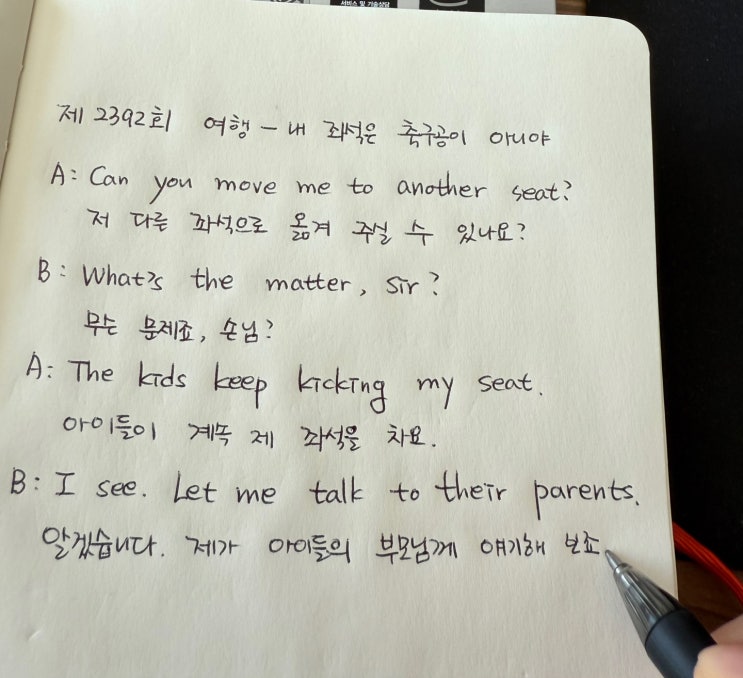 서비스 및 기술상담
제 2392회 여행 – 내 좌석은 축구공이 아니야
A: Can you move me to another seat?
저 다른 좌석으로 옮겨 주실 수 있나요?
B: What's the matter, sir?
무슨 문제죠, 손님?
A: The kids keep kicking my seat.
아이들이 계속 제 좌석을 차요.
B: I see. Let me talk to their parents.
알겠습니다. 제가 아이들의 부모님께 얘기해 보죠